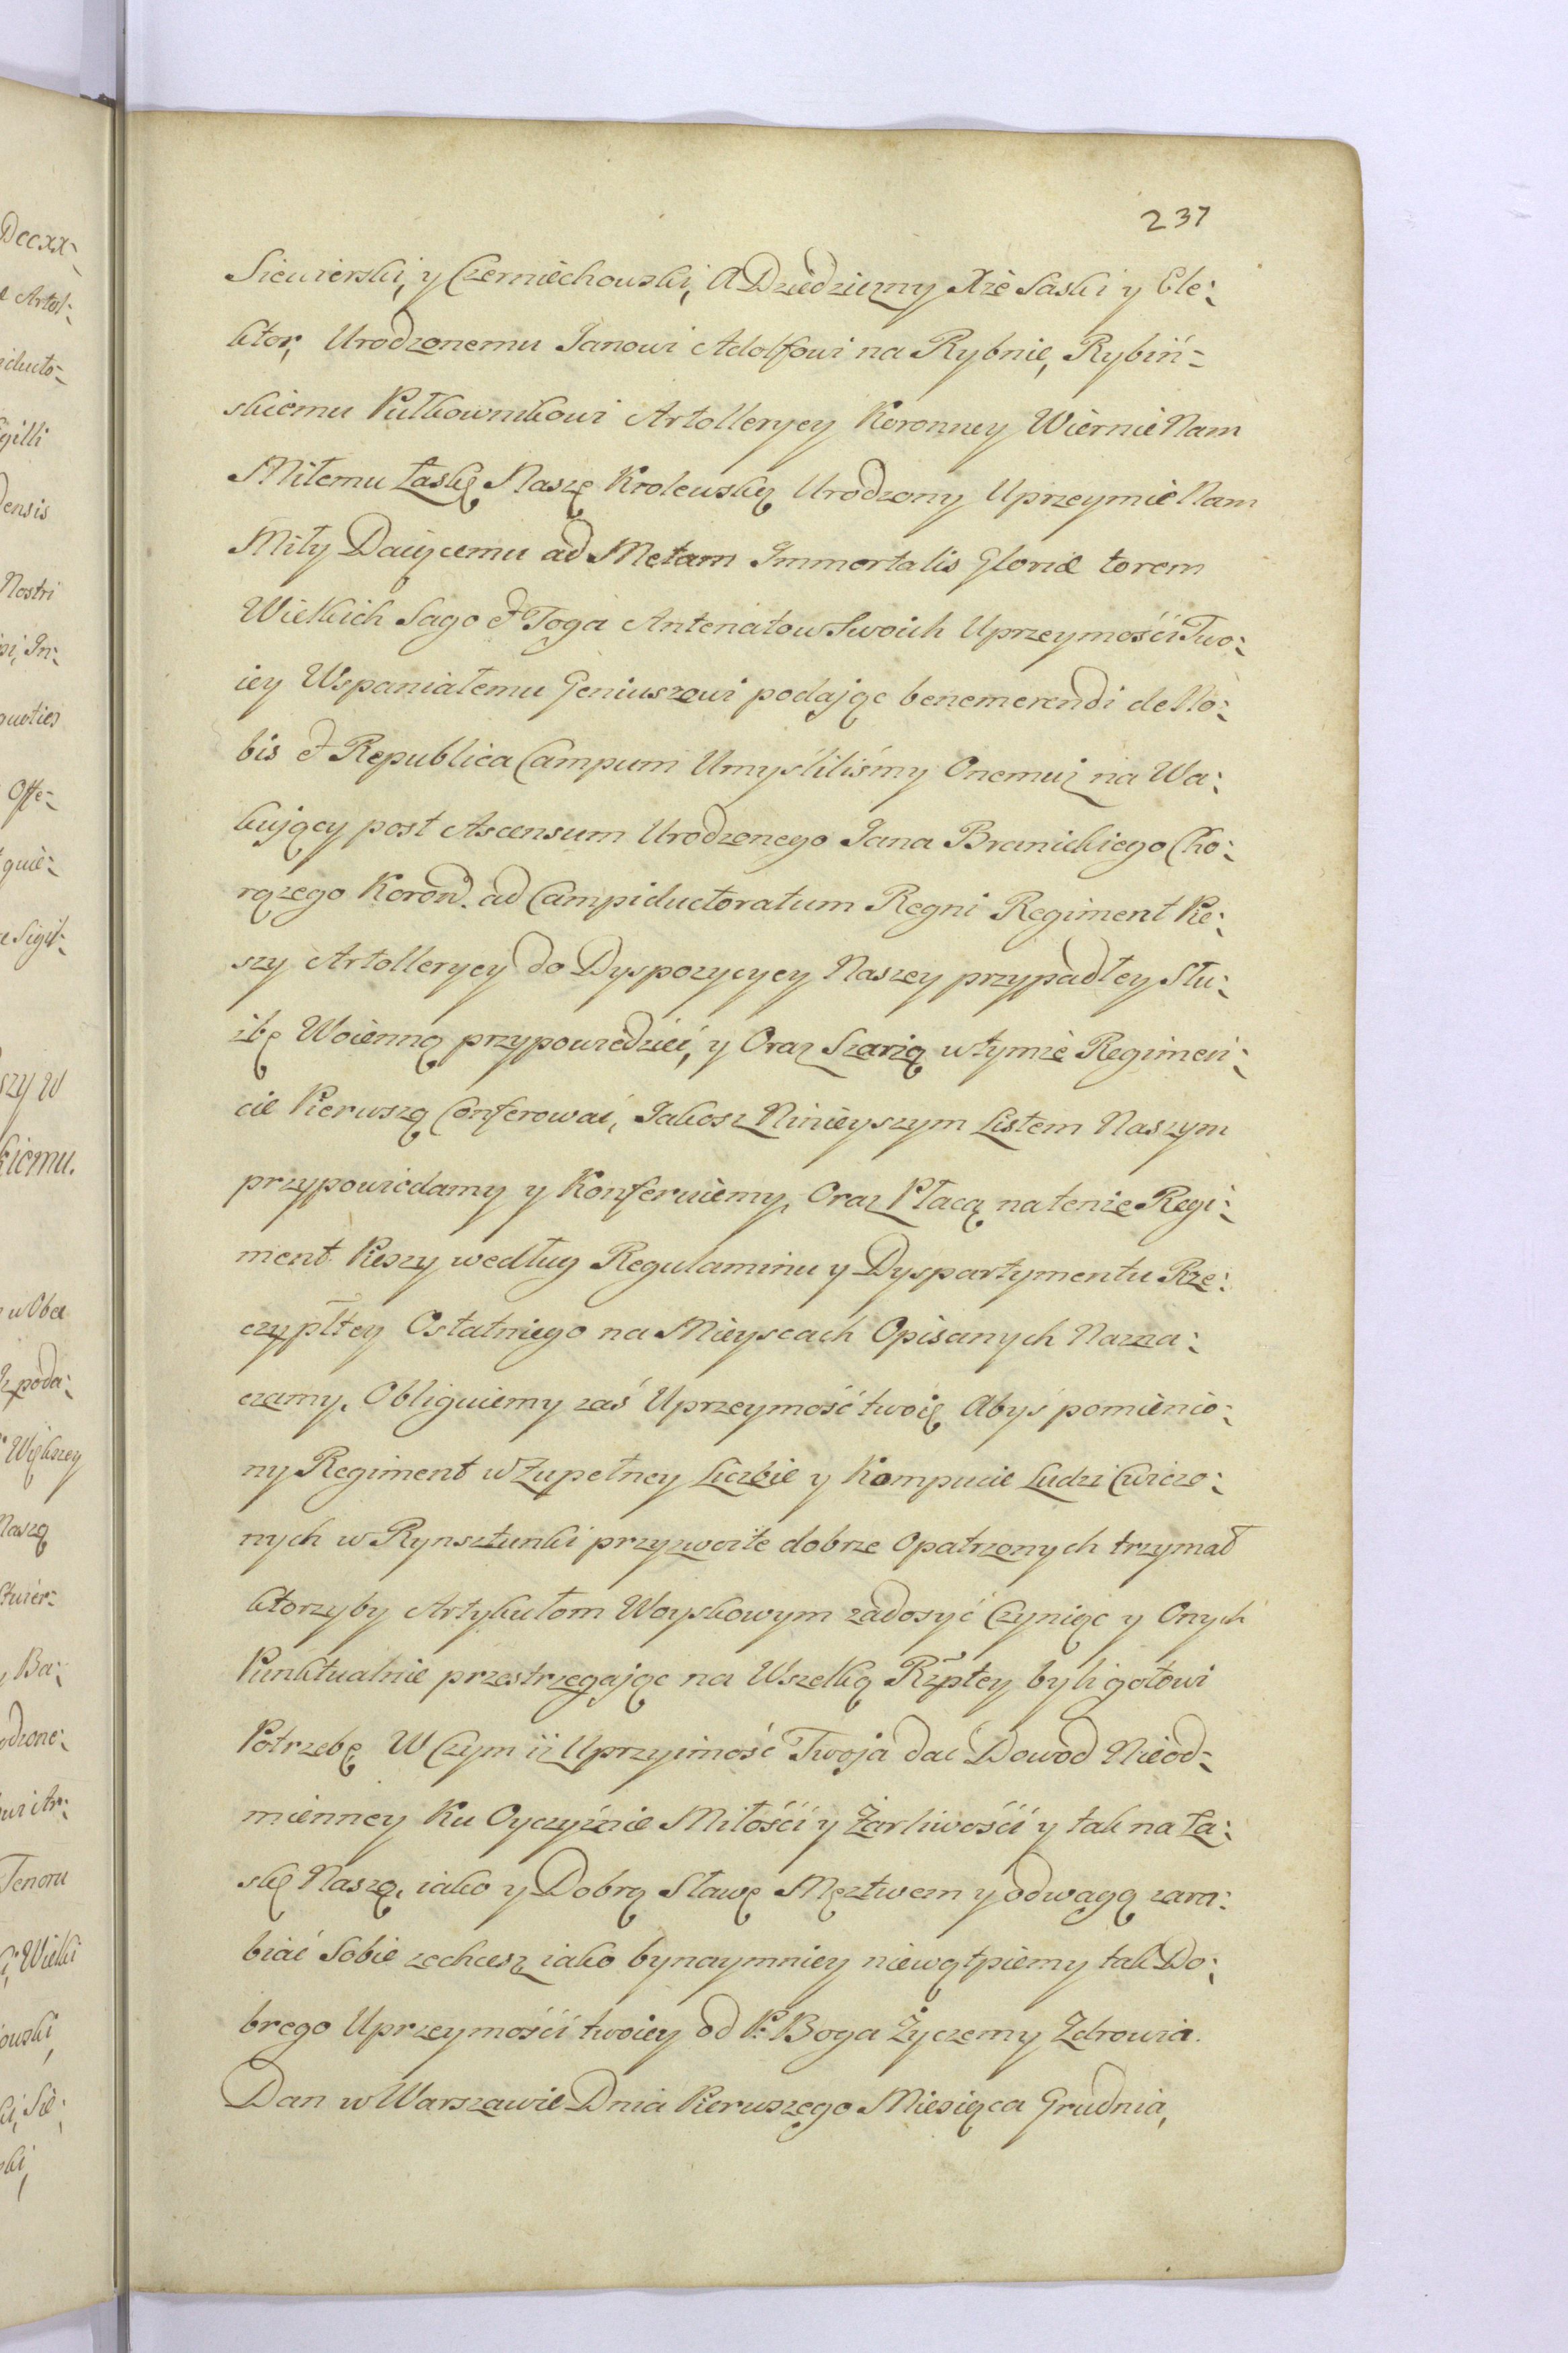 237
Siewierski, y Czerniechowski, A Dziedziczny Xże Saski y Ele:
ktor, Urodzonemu Janowi Adolfowi na Rybnie, Rybiń=
skiemu Pułkownikowi Artolleryey Koronney Wiernie Nam
Miłemu Łaskę Naszę Krolewską Urodzony Uprzeymie Nam
Miły Daiącemu ad Metam Immortalis Gloriæ torem
Wielkich Sago & Toga Antenatow Swoich Uprzeymości Two:
iey Wspaniałemu Geniuszowi podając benemerendi de No:
bis & Republica Campum Umyśliliśmy Onemuż na Wa:
kujący post Ascensum Urodzonego Jana Branickiego Cho:
rążego Koron. ad Campiductoratum Regni Regiment Pie:
szy Artolleryey do Dyspozycyey Naszey przypadłey Słu:
żbę Woienną przypowiedzieć, y Oraz Szarżą w tymże Regimen:
cie Pierwszą Conferować, Jakosz Ninieyszym Listem Naszym
przypowiedamy y Konferuiemy, Oraz Płacą na tenże Regi:
ment Pieszy według Regulaminu y Dyspartymentu Rze:
czypltey Ostatniego na Mieyscach Opisanych Nazna:
czamy. Obliguiemy zaś Uprzeymość twoię Abyś pomienio:
ny Regiment w Zupełney Liczbie y Kompucie Ludzi Cwiczo:
nych w Rynsztunki przyzwoite dobrze Opatrzonych trzymał
ktorzyby Artykułom Woyskowym zadosyć Czyniąc y Onych
Punktualnie przestrzegając na Wszelką Rzpltey byli gotowi
Potrzebę W Czym iż Uprzyimość Twoja dać Dowod Nieod=
mienney Ku Oyczyźnie Miłości y Żarliwości y tak na Ła:
skę Naszą, iako y Dobrą Sławę Męztwem y odwagą zara:
biać Sobie zechcesz iako bynaymniey niewątpiemy tak Do:
brego Uprzeymości twoiey od P. Boga Życzemy Zdrowia.
Dan w Warszawie Dnia Pierwszego Miesiąca Grudnia,